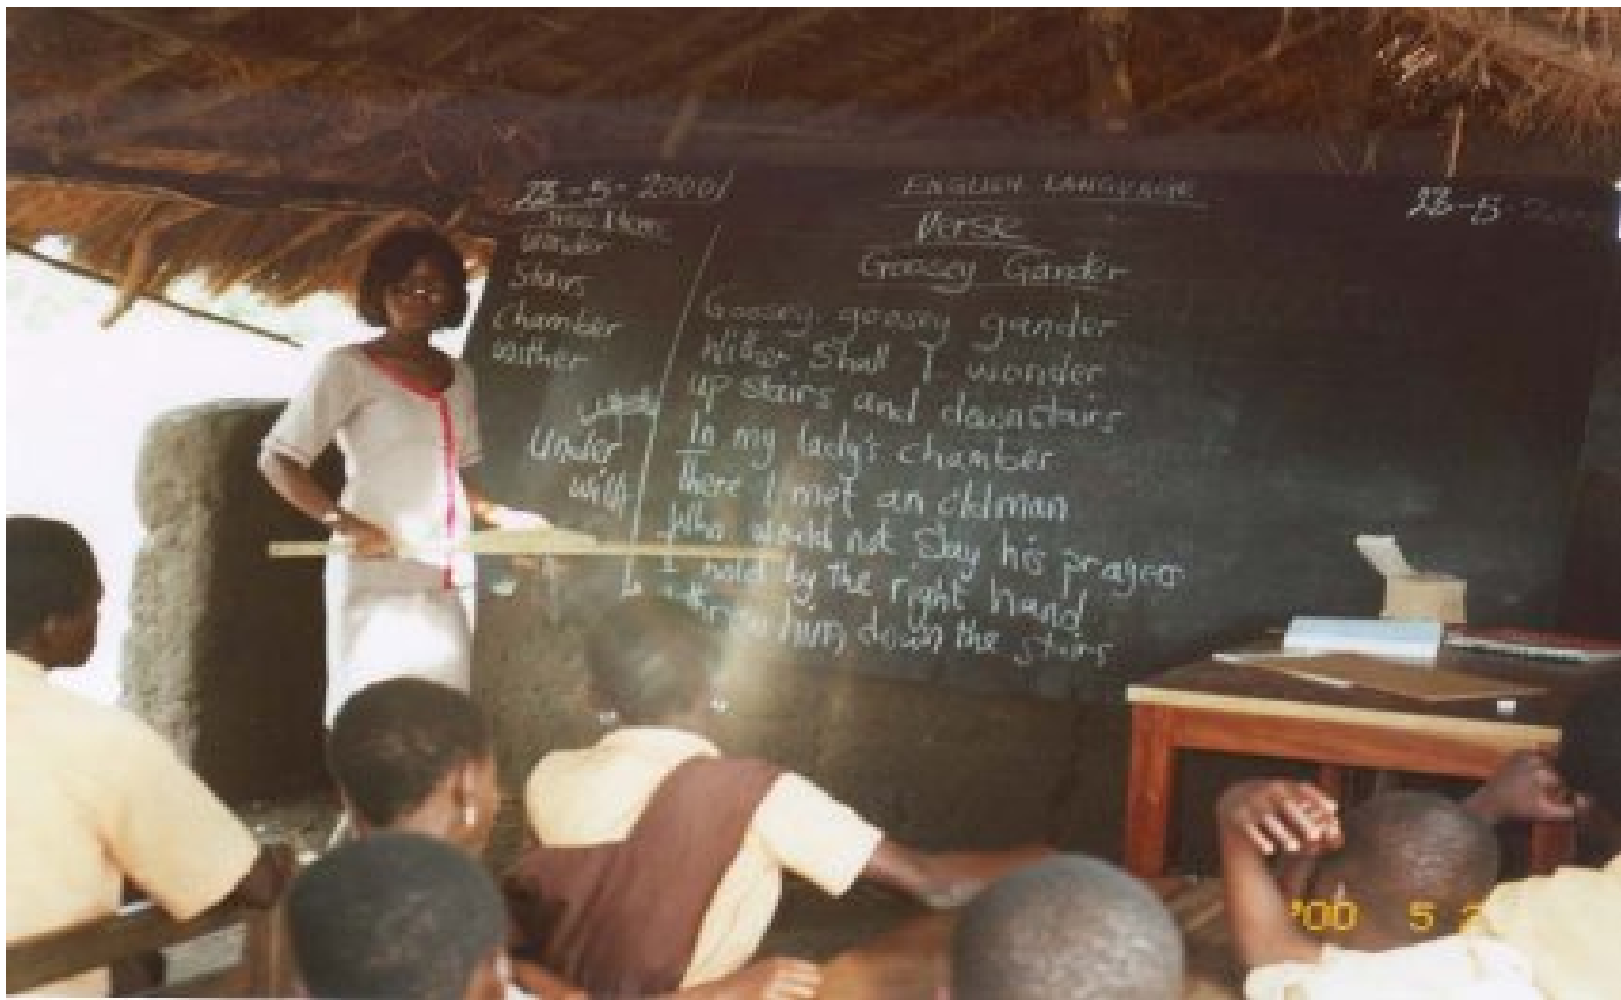 23-5-2000
Wonder
Stairs
Chamber
Wither
Under
with
ENGLISH LANGUAGE
23-5-2000
Verse
Goosey Gander
Goosey goosey gander
Wither Shall I wonder
Up stairs and downstairs
In my lady's chamber
There I met an old man
Who would not Say his prayers
I hold by the right hand
throw him down the stairs
'00 5 2